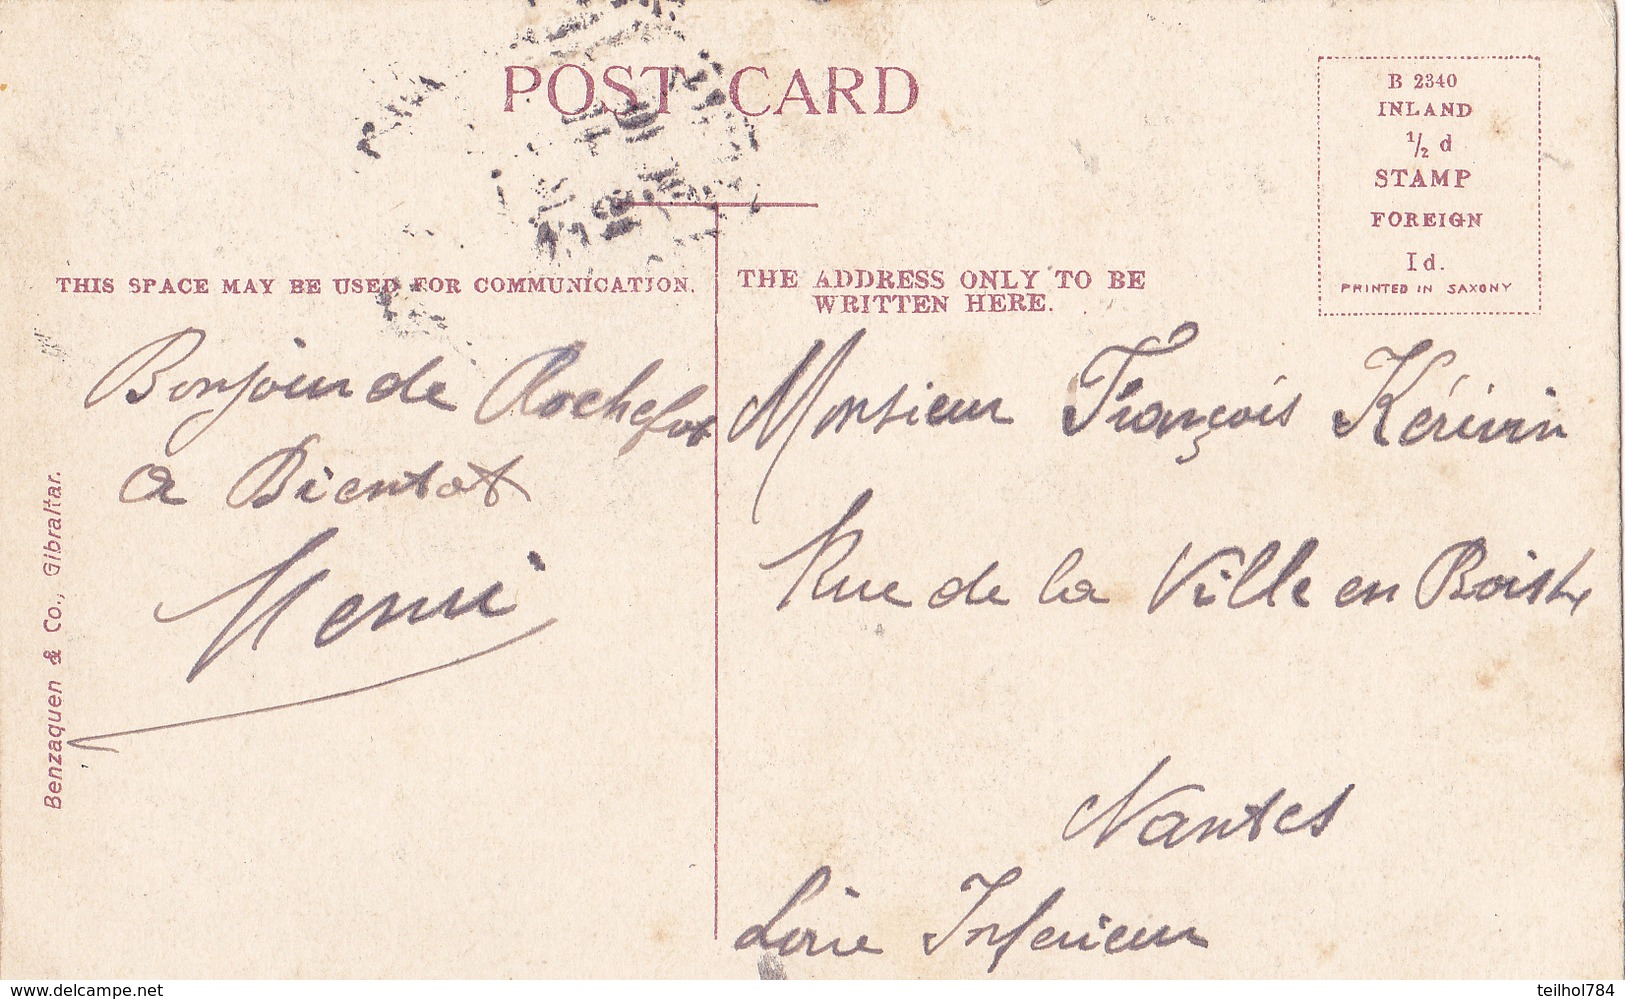 POST CARD
B 2340
INLAND
1/2 d
STAMP
FOREIGN
1d.
PRINTED IN SAXONY
THIS SPACE MAY BE USED FOR COMMUNICATION.
THE ADDRESS ONLY TO BE
WRITTEN HERE.
Bonjour de Rochefort
a Bientot
Henri
Benzaquen & Co., Gibraltar.
Monsieur François Kérivin
Rue de la Ville en Bois
Nantes
Loire Inferieur
www.delcampe.net
teilhol784